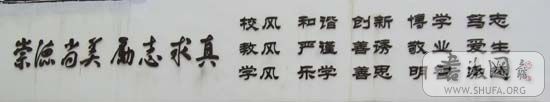 崇德尚美 励志求真
校风 和谐 创新 博学 笃志
教风 严谨 善诱 敬业 爱生
学风 乐学 善思 明
书法网
WWW.SHUFA.ORG